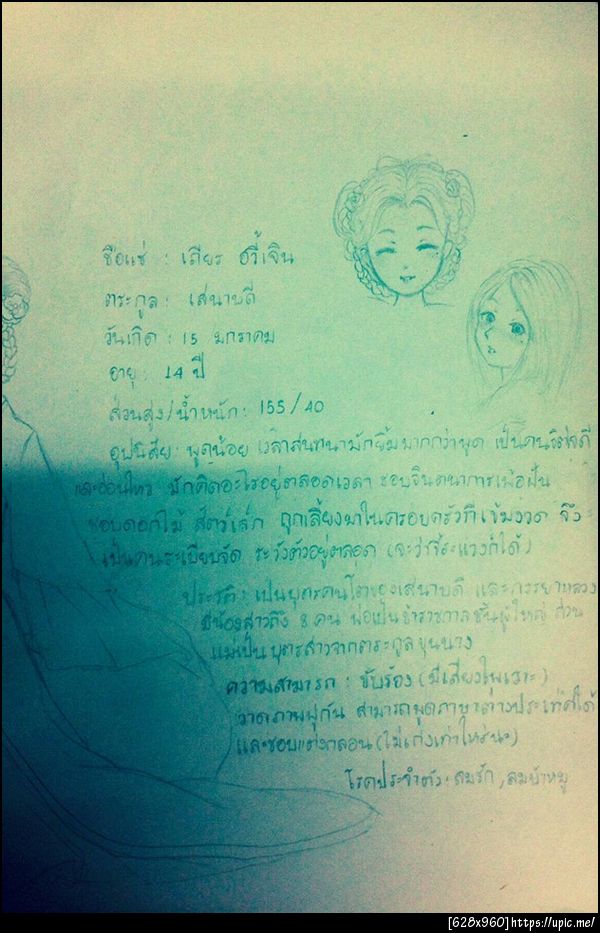 ชื่อแซ่ : เถียร อวี้เจิน
ตระกูล : เสนาบดี
วันเกิด : 15 มกราคม
อายุ : 14 ปี
ส่วนสูง/น้ำหนัก : 155/40
อุปนิสัย : พูดน้อย เวลาสนทนามักยิ้มมากกว่าพูด เป็นคนจิตใจดี
และอ่อนไหว มักคิดอะไรอยู่ตลอดเวลา ชอบจินตนาการเพ้อฝัน
ชอบดอกไม้ สัตว์เล็ก ถูกเลี้ยงมาในครอบครัวที่เข้มงวด จึง
เป็นคนระเบียบจัด ระวังตัวอยู่ตลอด (จะว่าขี้ระแวงก็ได้)
ประวัติ : เป็นบุตรคนโตของเสนาบดี และภรรยาหลวง
มีน้องสาวถึง 8 คน พ่อเป็นข้าราชการชั้นผู้ใหญ่ ส่วน
แม่เป็นบุตรสาวจากตระกูลขุนนาง
ความสามารถ : ขับร้อง (มีเสียงไพเราะ)
วาดภาพพู่กัน สามารถพูดภาษาต่างประเทศได้
และชอบแต่งกลอน (ไม่เก่งเท่าไหร่นะ)
โรคประจำตัว : ลมรัก, ลมบ้าหมู
[628x960] https://upic.me/